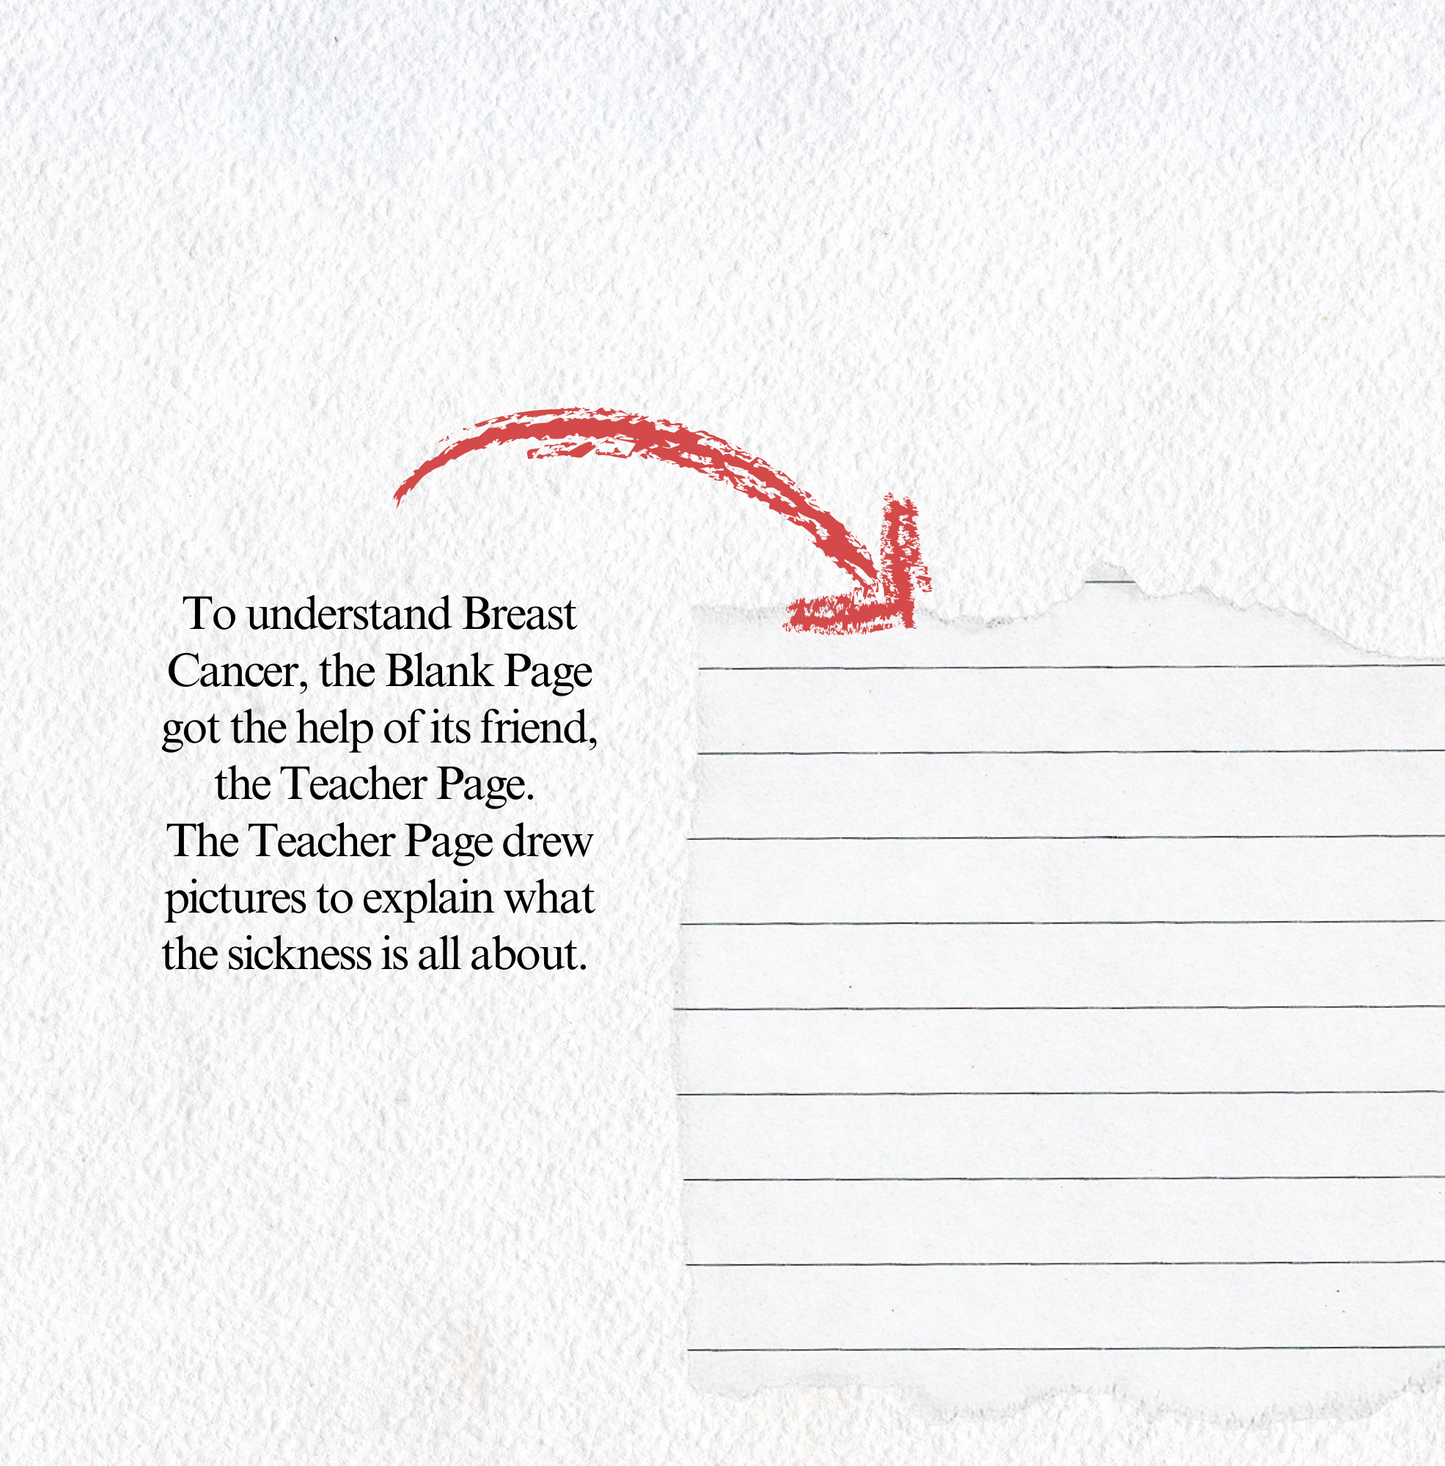 To understand Breast
Cancer, the Blank Page
got the help of its friend,
the Teacher Page.
The Teacher Page drew
pictures to explain what
the sickness is all about.